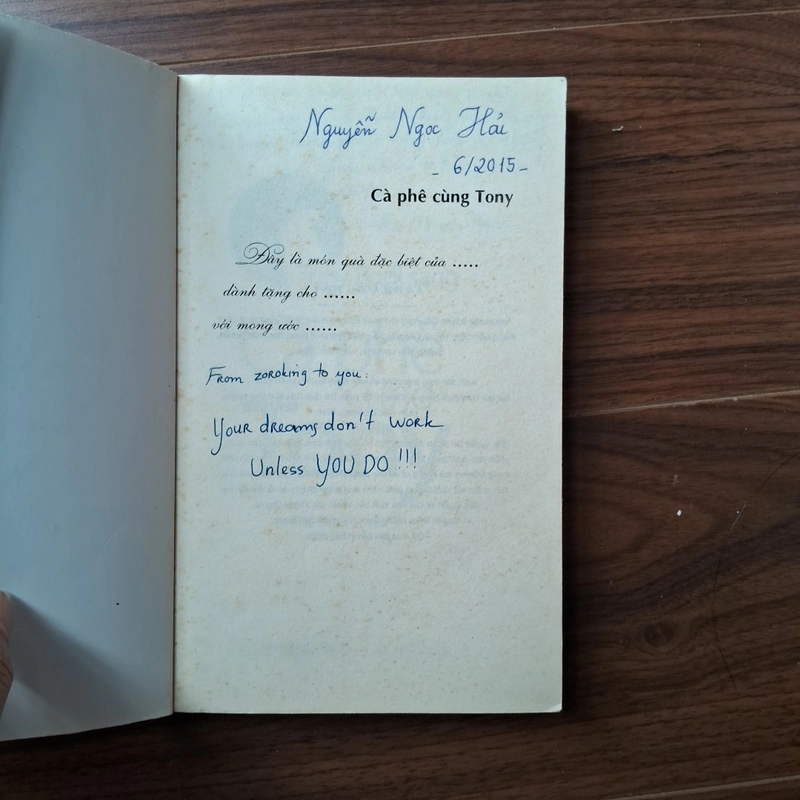 Nguyễn Ngọc Hải
- 6/2015 -
Cà phê cùng Tony
Đây là món quà đặc biệt của .....
dành tặng cho ......
với mong ước ......
From zoroking to you:
Your dreams don't work
Unless YOU DO !!!